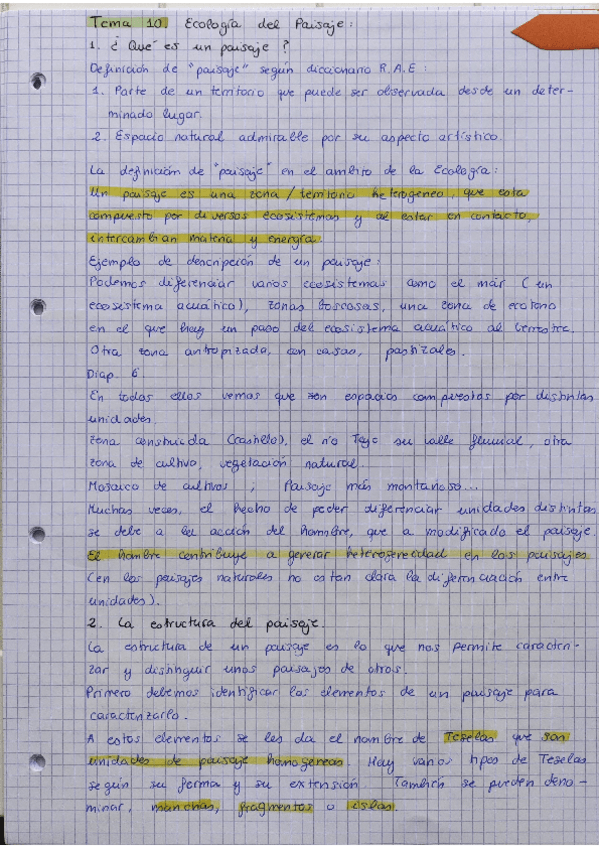 Tema 10. Ecología del Paisaje:
1. ¿ Qué es un paisaje ?
Definición de "paisaje" según diccionario R.A.E:
1. Parte de un territorio que puede ser observada desde un deter-
minado lugar.
2. Espacio natural admirable por su aspecto artístico.
La definición de "paisaje" en el ambito de la Ecología:
Un paisaje es una zona / territorio heterogeneo, que esta
compuesto por diversos ecosistemas y al estar en contacto,
intercambian materia y energía.
Ejemplo de descripción de un paisaje:
Podemos diferenciar varios ecosistemas como el már ( un
ecosistema acuático), zonas boscosas, una zona de ecotono
en el que hay un paso del ecosistema acuático al terrestre.
Otra zona antropizada, con casas, pastizales.
Diap. 6
En todos ellos vemos que son espacios compuestos por distintas
unidades.
Zona construida (castillo), el río Tajo su valle fluvial, otra
zona de cultivo, vegetación natural.
Mosaico de cultivos ; Paisaje más montañoso...
Muchas veces, el hecho de poder diferenciar unidades distintas
se debe a la acción del hombre, que a modificado el paisaje.
El hombre contribuye a generar heterogeneidad en los paisajes
(en los paisajes naturales no estan clara la diferenciación entre
unidades).
2. La estructura del paisaje.
La estructura de un paisaje es lo que nos permite caracteri-
zar y distinguir unos paisajes de otros.
Primero debemos identificar los elementos de un paisaje para
caracterizarlo.
A estos elementos se les da el nombre de Teselas que son
unidades de paisaje homogéneas. Hay varios tipos de Teselas
según su forma y su extensión. También se pueden deno-
minar, manchas, fragmentos o islas.